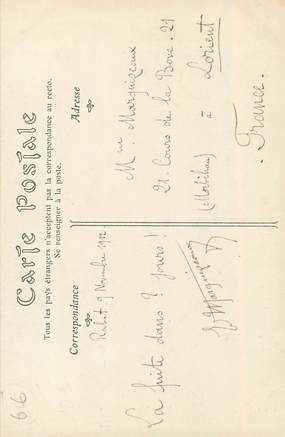 Carte Postale
Tous les pays étrangers n'acceptent pas la correspondance au recto.
Se renseigner à la poste.
Correspondance
Rabat 9 Novembre 1912
La suite dans ? jours !
Adresse
Marguizeaux
21 Cours de la Bove . 21
(Morbihan) à Lorient
. France .
66